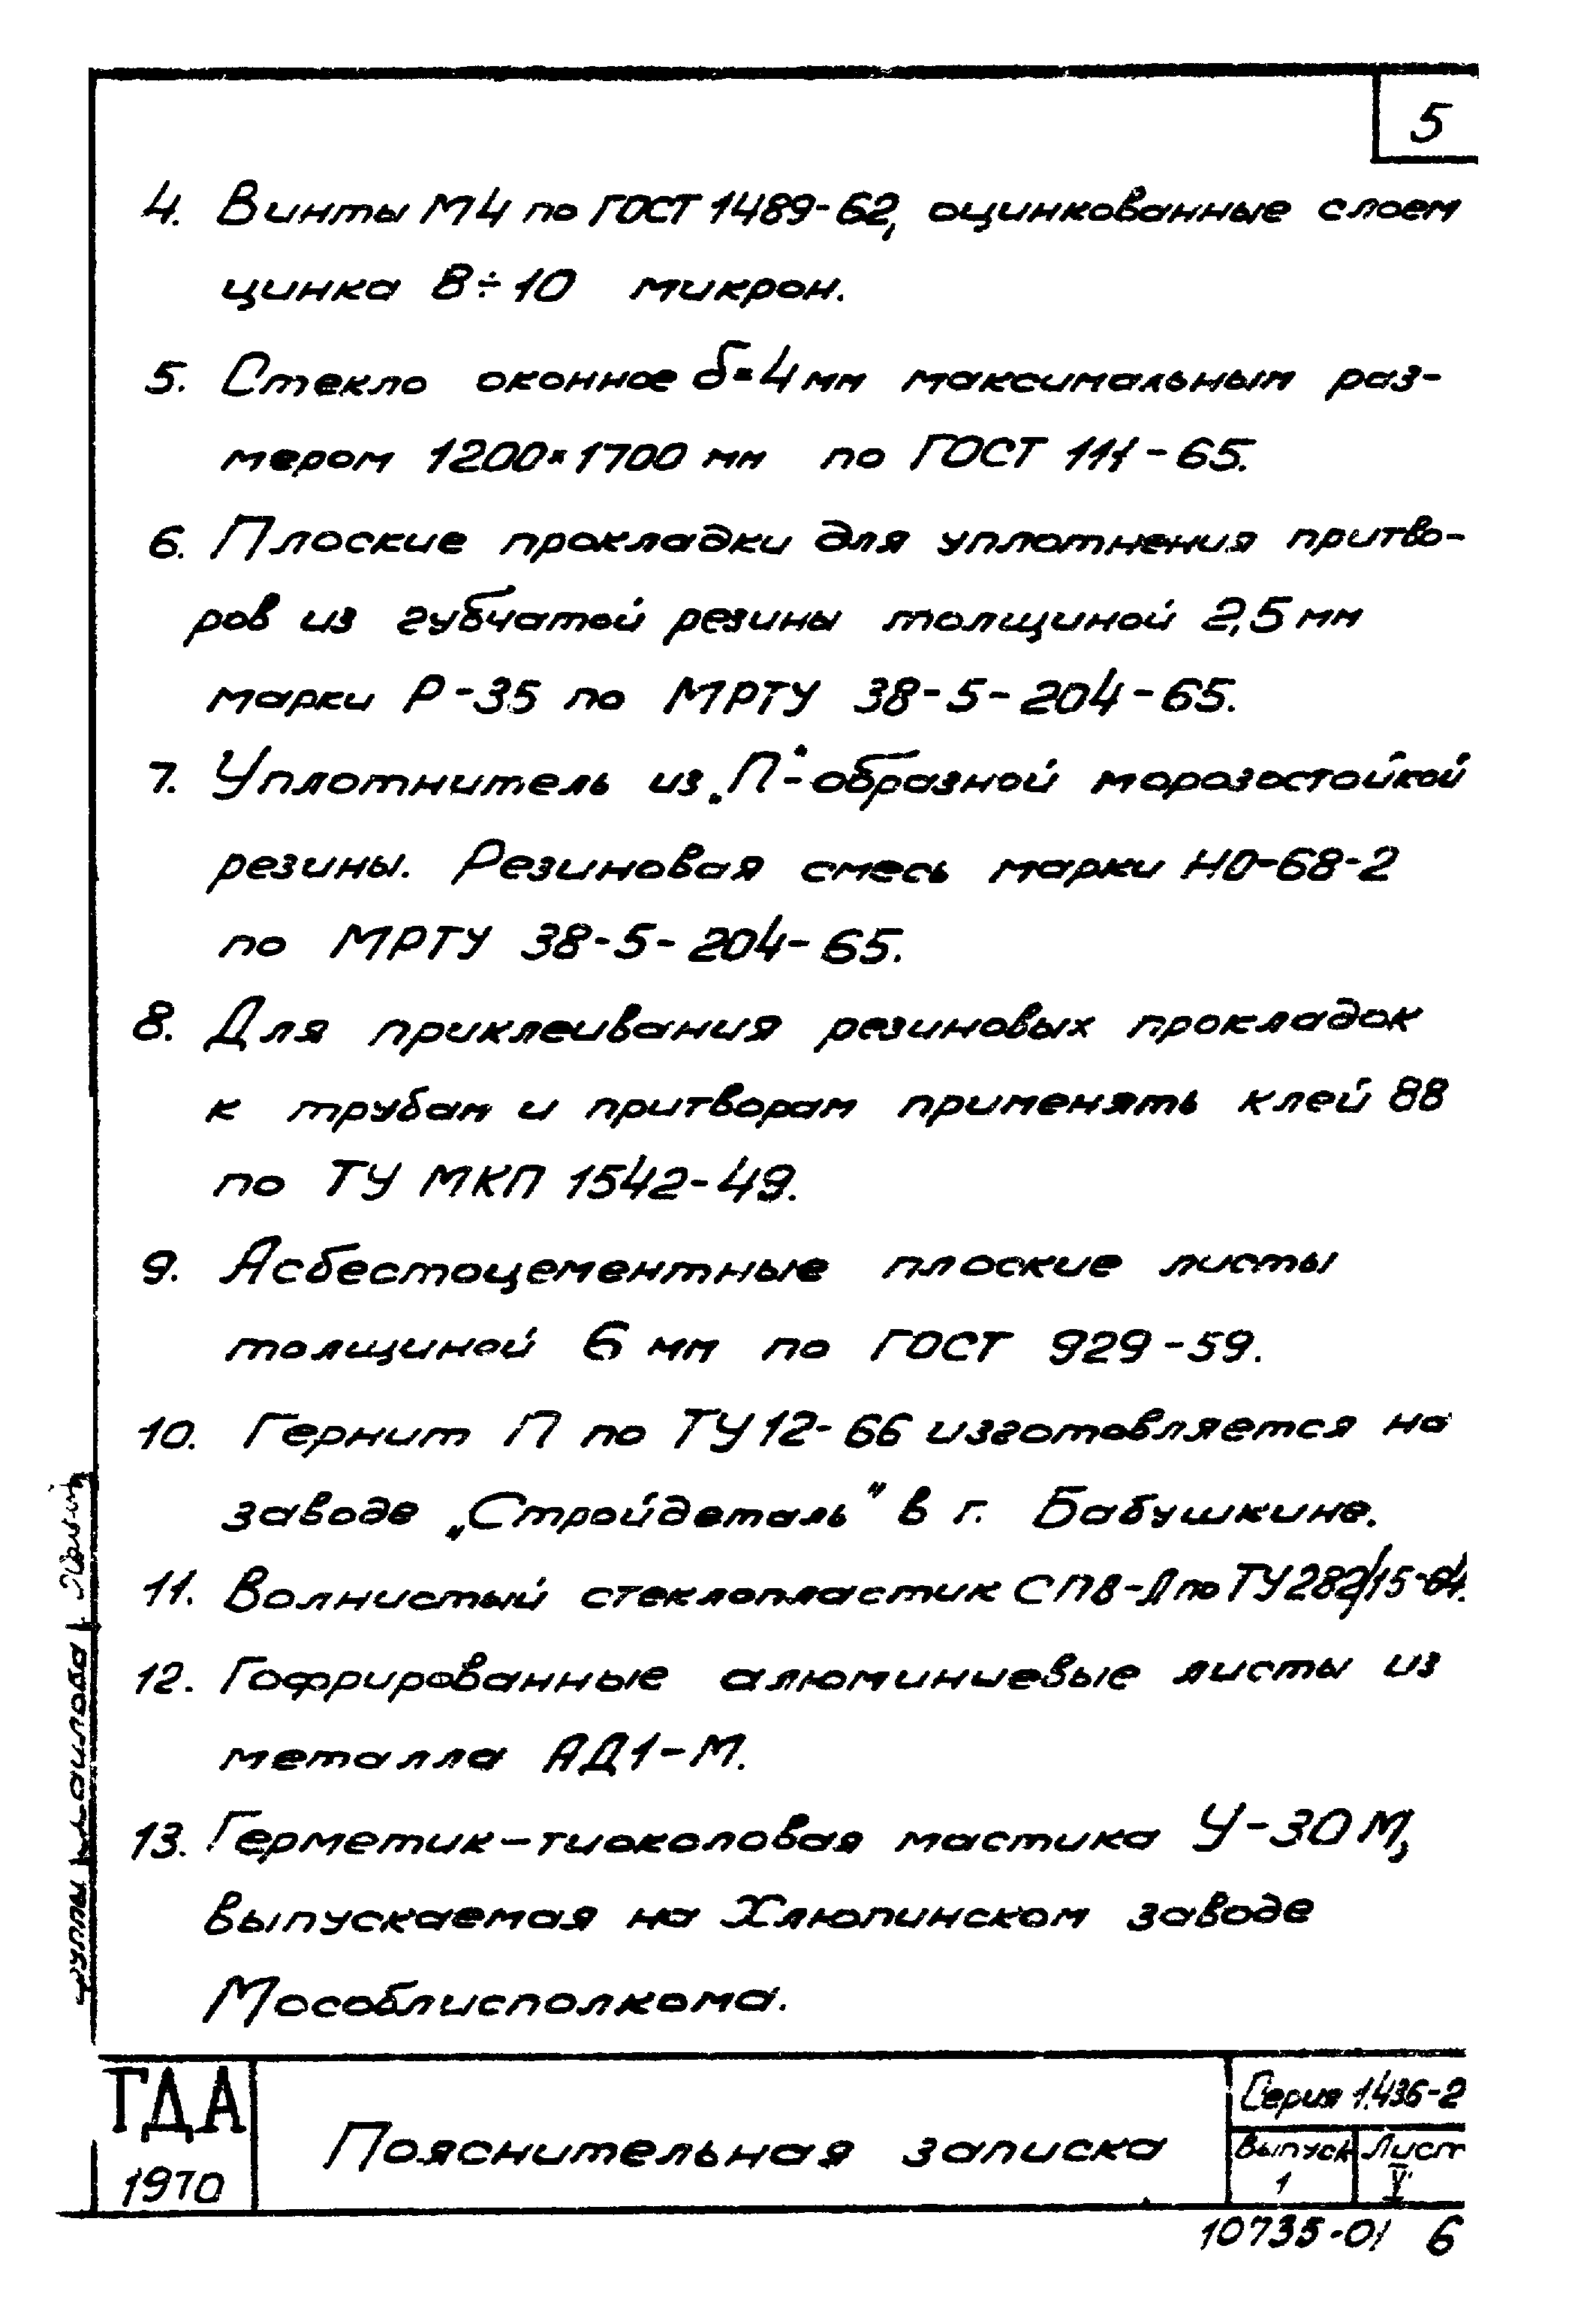 5
4. Винты М4 по ГОСТ 1489-62, оцинкованные слоем
цинка 8÷10 микрон.
5. Стекло оконное δ=4мм максимальным раз-
мером 1200×1700 мм по ГОСТ 111-65.
6. Плоские прокладки для уплотнения притво-
ров из губчатой резины толщиной 2,5 мм
марки Р-35 по МРТУ 38-5-204-65.
7. Уплотнитель из „П"-образной морозостойкой
резины. Резиновая смесь марки НО-68-2
по МРТУ 38-5-204-65.
8. Для приклеивания резиновых прокладок
к трубам и притворам применять клей 88
по ТУ МКП 1542-49.
9. Асбестоцементные плоские листы
толщиной 6 мм по ГОСТ 929-59.
10. Гернит П по ТУ 12-66 изготовляется на
заводе „Стройдеталь" в г. Бабушкине.
11. Волнистый стеклопластик СПВ-Д по ТУ 282/15-64.
12. Гофрированные алюминиевые листы из
металла АД1-М.
13. Герметик-тиоколовая мастика У-30М,
выпускаемая на Хлюпинском заводе
Мособлисполкома.
ГДА
1970
Пояснительная записка
Серия 1.436-2
Выпуск
1
Лист
V
10735-01 6